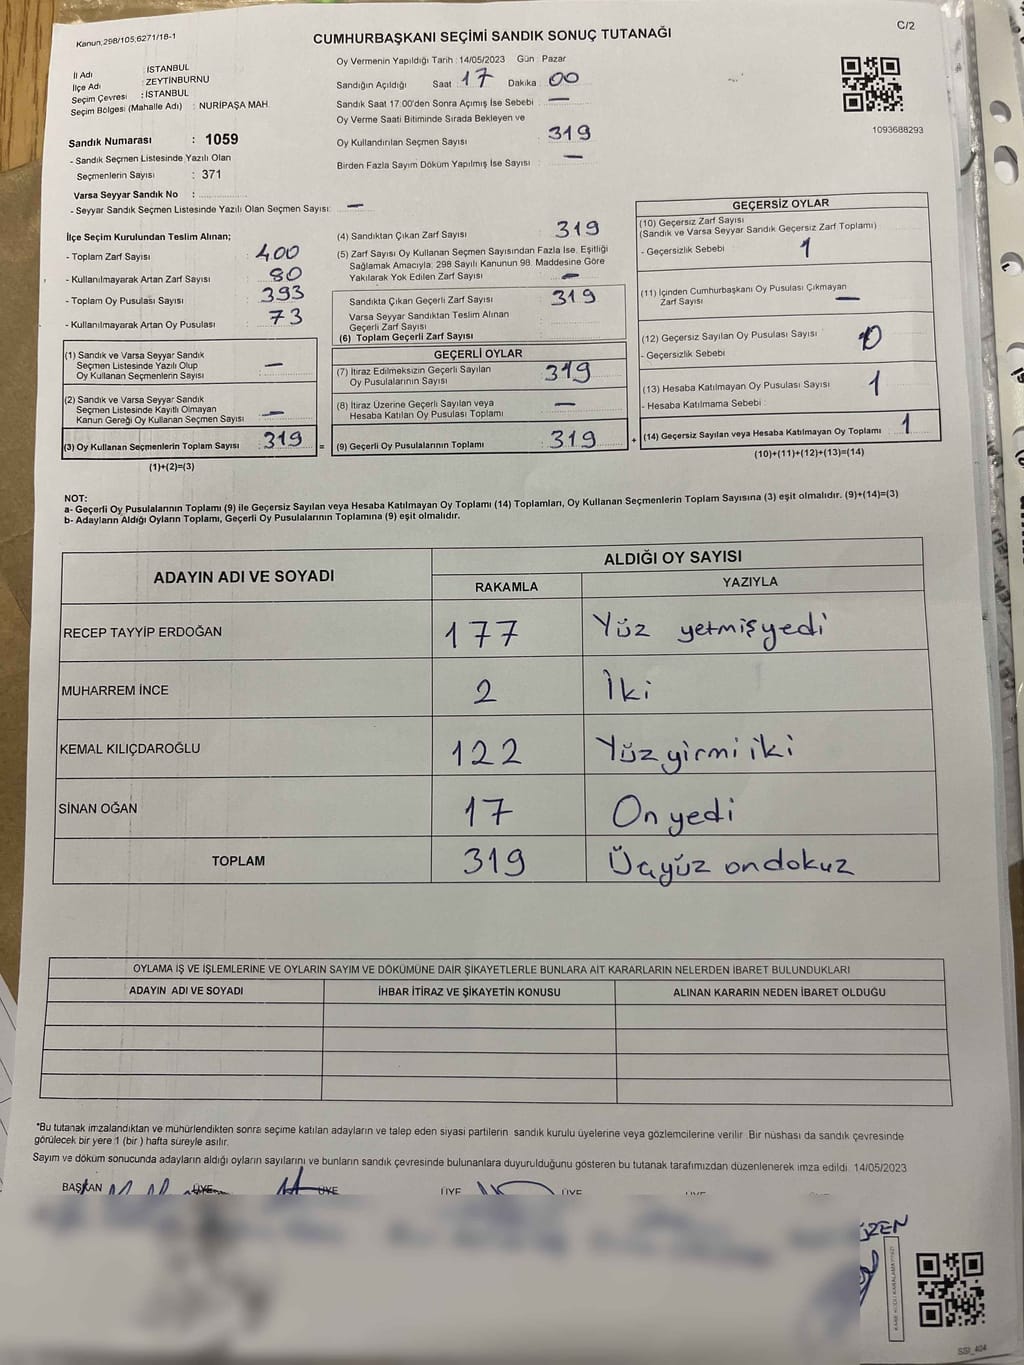 Kanun,298/105,6271/18-1
C/2
CUMHURBAŞKANI SEÇİMİ SANDIK SONUÇ TUTANAĞI
İl Adı : İSTANBUL
İlçe Adı : ZEYTİNBURNU
Seçim Çevresi : İSTANBUL
Seçim Bölgesi (Mahalle Adı) : NURİPAŞA MAH
Oy Vermenin Yapıldığı Tarih : 14/05/2023 Gün : Pazar
Sandığın Açıldığı Saat 17 Dakika 00
Sandık Saat 17:00'den Sonra Açımış İse Sebebi : —
Oy Verme Saati Bitiminde Sırada Bekleyen ve
Oy Kullandırılan Seçmen Sayısı 319
Birden Fazla Sayım Döküm Yapılmış İse Sayısı : —
1093688293
Sandık Numarası : 1059
- Sandık Seçmen Listesinde Yazılı Olan
Seçmenlerin Sayısı : 371
Varsa Seyyar Sandık No :
- Seyyar Sandık Seçmen Listesinde Yazılı Olan Seçmen Sayısı: —
İlçe Seçim Kurulundan Teslim Alınan;
- Toplam Zarf Sayısı : 400
- Kullanılmayarak Artan Zarf Sayısı : 80
- Toplam Oy Pusulası Sayısı : 393
- Kullanılmayarak Artan Oy Pusulası : 73
(1) Sandık ve Varsa Seyyar Sandık
Seçmen Listesinde Yazılı Olup
Oy Kullanan Seçmenlerin Sayısı : —
(2) Sandık ve Varsa Seyyar Sandık
Seçmen Listesinde Kayıtlı Olmayan
Kanun Gereği Oy Kullanan Seçmen Sayısı : —
(3) Oy Kullanan Seçmenlerin Toplam Sayısı : 319 =
(1)+(2)=(3)
(4) Sandıktan Çıkan Zarf Sayısı : 319
(5) Zarf Sayısı Oy Kullanan Seçmen Sayısından Fazla İse, Eşitliği
Sağlamak Amacıyla, 298 Sayılı Kanunun 98. Maddesine Göre
Yakılarak Yok Edilen Zarf Sayısı : —
Sandıkta Çıkan Geçerli Zarf Sayısı : 319
Varsa Seyyar Sandıktan Teslim Alınan
Geçerli Zarf Sayısı :
(6) Toplam Geçerli Zarf Sayısı
GEÇERLİ OYLAR
(7) İtiraz Edilmeksizin Geçerli Sayılan
Oy Pusulalarının Sayısı : 319
(8) İtiraz Üzerine Geçerli Sayılan veya
Hesaba Katılan Oy Pusulası Toplamı : —
(9) Geçerli Oy Pusulalarının Toplamı : 319 +
GEÇERSİZ OYLAR
(10) Geçersiz Zarf Sayısı
(Sandık ve Varsa Seyyar Sandık Geçersiz Zarf Toplamı)
- Geçersizlik Sebebi : 1
(11) İçinden Cumhurbaşkanı Oy Pusulası Çıkmayan
Zarf Sayısı : —
(12) Geçersiz Sayılan Oy Pusulası Sayısı : 0
- Geçersizlik Sebebi :
(13) Hesaba Katılmayan Oy Pusulası Sayısı : 1
- Hesaba Katılmama Sebebi :
(14) Geçersiz Sayılan veya Hesaba Katılmayan Oy Toplamı : 1
(10)+(11)+(12)+(13)=(14)
NOT:
a- Geçerli Oy Pusulalarının Toplamı (9) ile Geçersiz Sayılan veya Hesaba Katılmayan Oy Toplamı (14) Toplamları, Oy Kullanan Seçmenlerin Toplam Sayısına (3) eşit olmalıdır. (9)+(14)=(3)
b- Adayların Aldığı Oyların Toplamı, Geçerli Oy Pusulalarının Toplamına (9) eşit olmalıdır.
ADAYIN ADI VE SOYADI
ALDIĞI OY SAYISI
RAKAMLA YAZIYLA
RECEP TAYYİP ERDOĞAN 177 Yüz yetmişyedi
MUHARREM İNCE 2 İki
KEMAL KILIÇDAROĞLU 122 Yüzyirmi iki
SİNAN OĞAN 17 Onyedi
TOPLAM 319 Üçyüz ondokuz
OYLAMA İŞ VE İŞLEMLERİNE VE OYLARIN SAYIM VE DÖKÜMÜNE DAİR ŞİKAYETLERLE BUNLARA AİT KARARLARIN NELERDEN İBARET BULUNDUKLARI
ADAYIN ADI VE SOYADI İHBAR İTİRAZ VE ŞİKAYETİN KONUSU ALINAN KARARIN NEDEN İBARET OLDUĞU
*Bu tutanak imzalandıktan ve mühürlendikten sonra seçime katılan adayların ve talep eden siyasi partilerin sandık kurulu üyelerine veya gözlemcilerine verilir. Bir nüshası da sandık çevresinde
görülecek bir yere 1 (bir ) hafta süreyle asılır.
Sayım ve döküm sonucunda adayların aldığı oyların sayılarını ve bunların sandık çevresinde bulunanlara duyurulduğunu gösteren bu tutanak tarafımızdan düzenlenerek imza edildi. 14/05/2023
BAŞKAN ÜYE ÜYE ÜYE ÜYE ÜYE